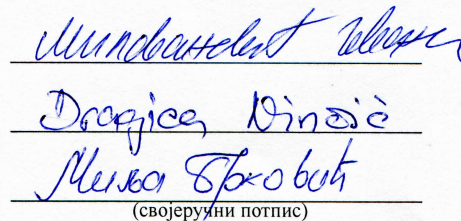 Миловановић
Dragica Ninčić
Миља Брковић
(својеручни потпис)